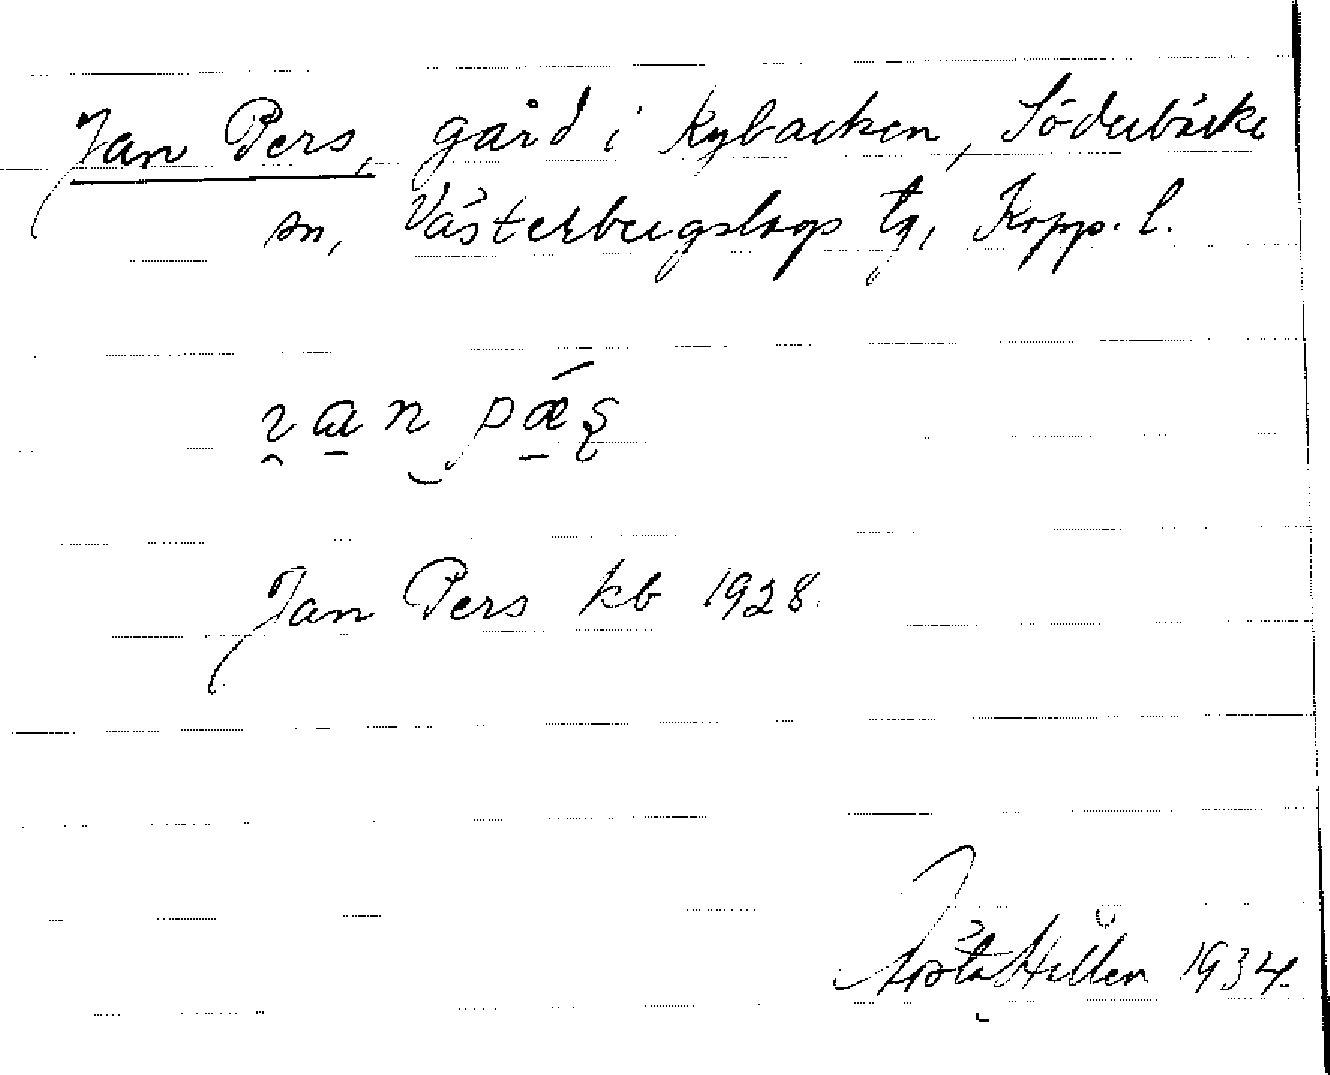 Jan Pers, gård i Kybacken, Söderbärke
sn, Västerbergslags tg, Kopp. l.
Jan Pers kb 1928.
Gösta Hillén 1934.